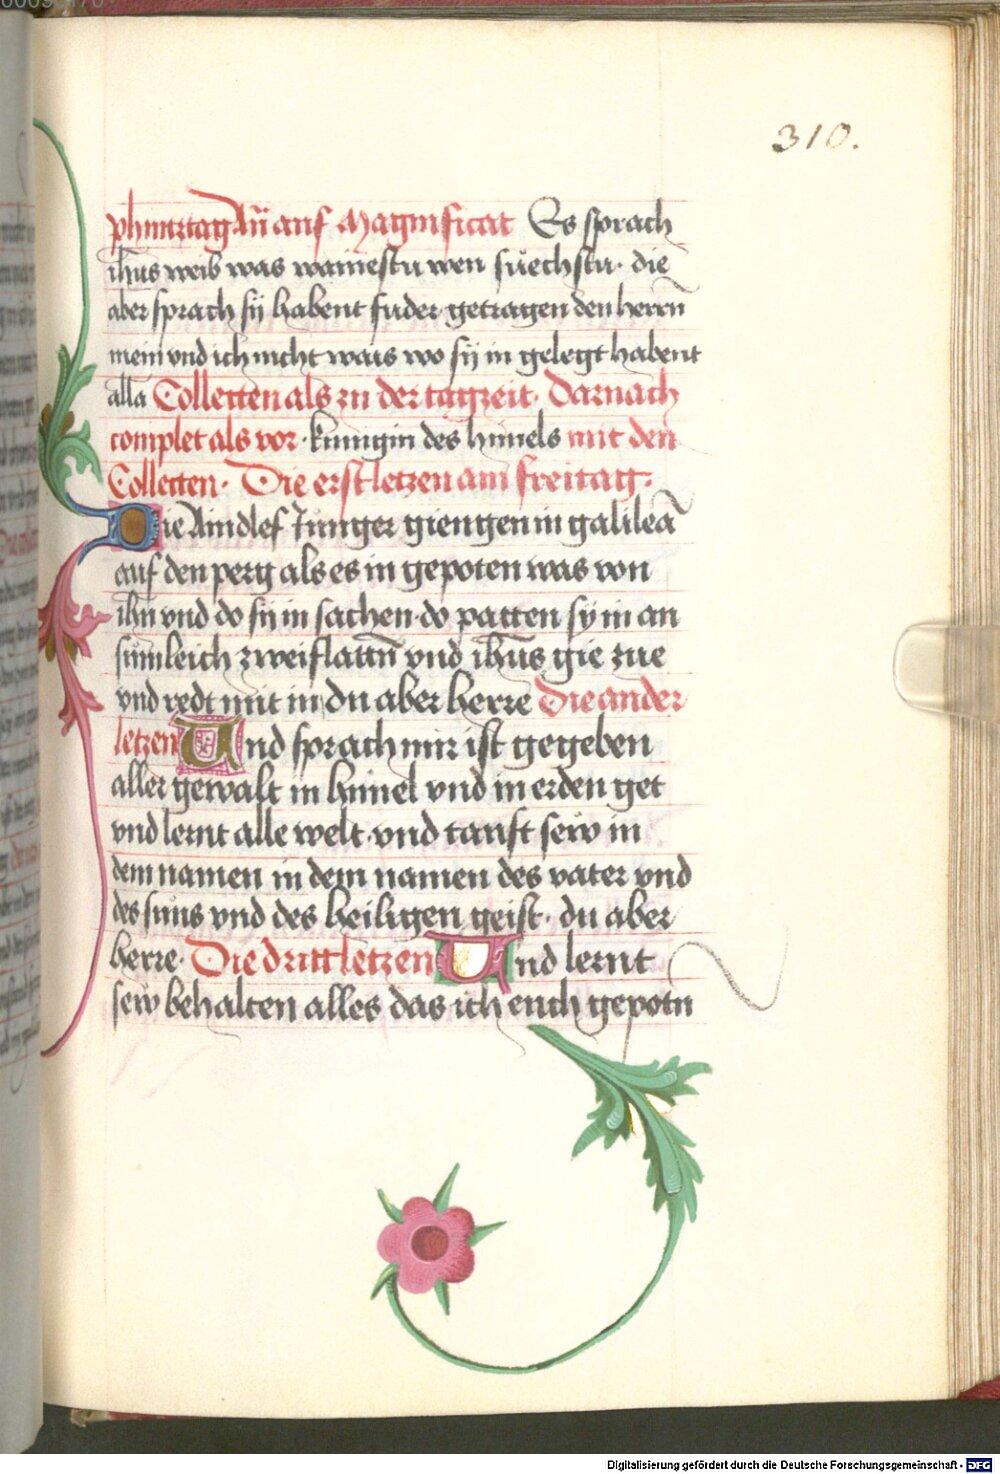 310.
phintztag Añ auf Magnificat Es sprach
ihus weib was wainestu wen suechstu · die
aber sprach sy habent fuder getragen den herrn
mein vnd ich nicht wais wo sy in gelegt habent
alla Collecten als zu der tagzeit · Darnach
complet als vor · kunigin des himels mit den
Collecten · Die erst letzen am freitag ·
Die Aindlef Junger giengen in galilea
auf den perg als es in gepoten was von
ihu vnd do sy in sachen · do patten sy in an
sumleich zweiflattn vnd ihus gie zue
vnd redt mit in du aber herre Die ander
letzen Und sprach mir ist gegeben
aller gewalt in himel vnd in erden get
vnd lernt alle welt · vnd tauft sew in
dem namen in dem namen des vater vnd
des suns vnd des heiligen geist · du aber
herre · Die dritt letzen Und lernt
sew behalten alles das ich euch gepotn
Digitalisierung gefördert durch die Deutsche Forschungsgemeinschaft - DFG